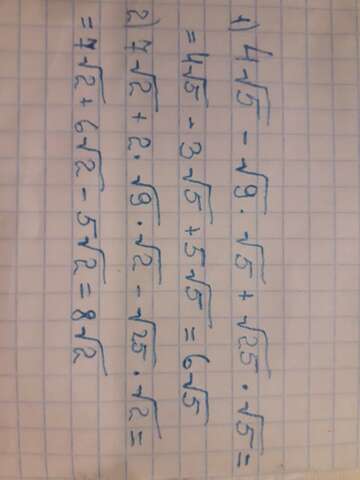 1) 4√5 - √9 · √5 + √25 · √5 =
= 4√5 - 3√5 + 5√5 = 6√5
2) 7√2 + 2 · √9 · √2 - √25 · √2 =
= 7√2 + 6√2 - 5√2 = 8√2